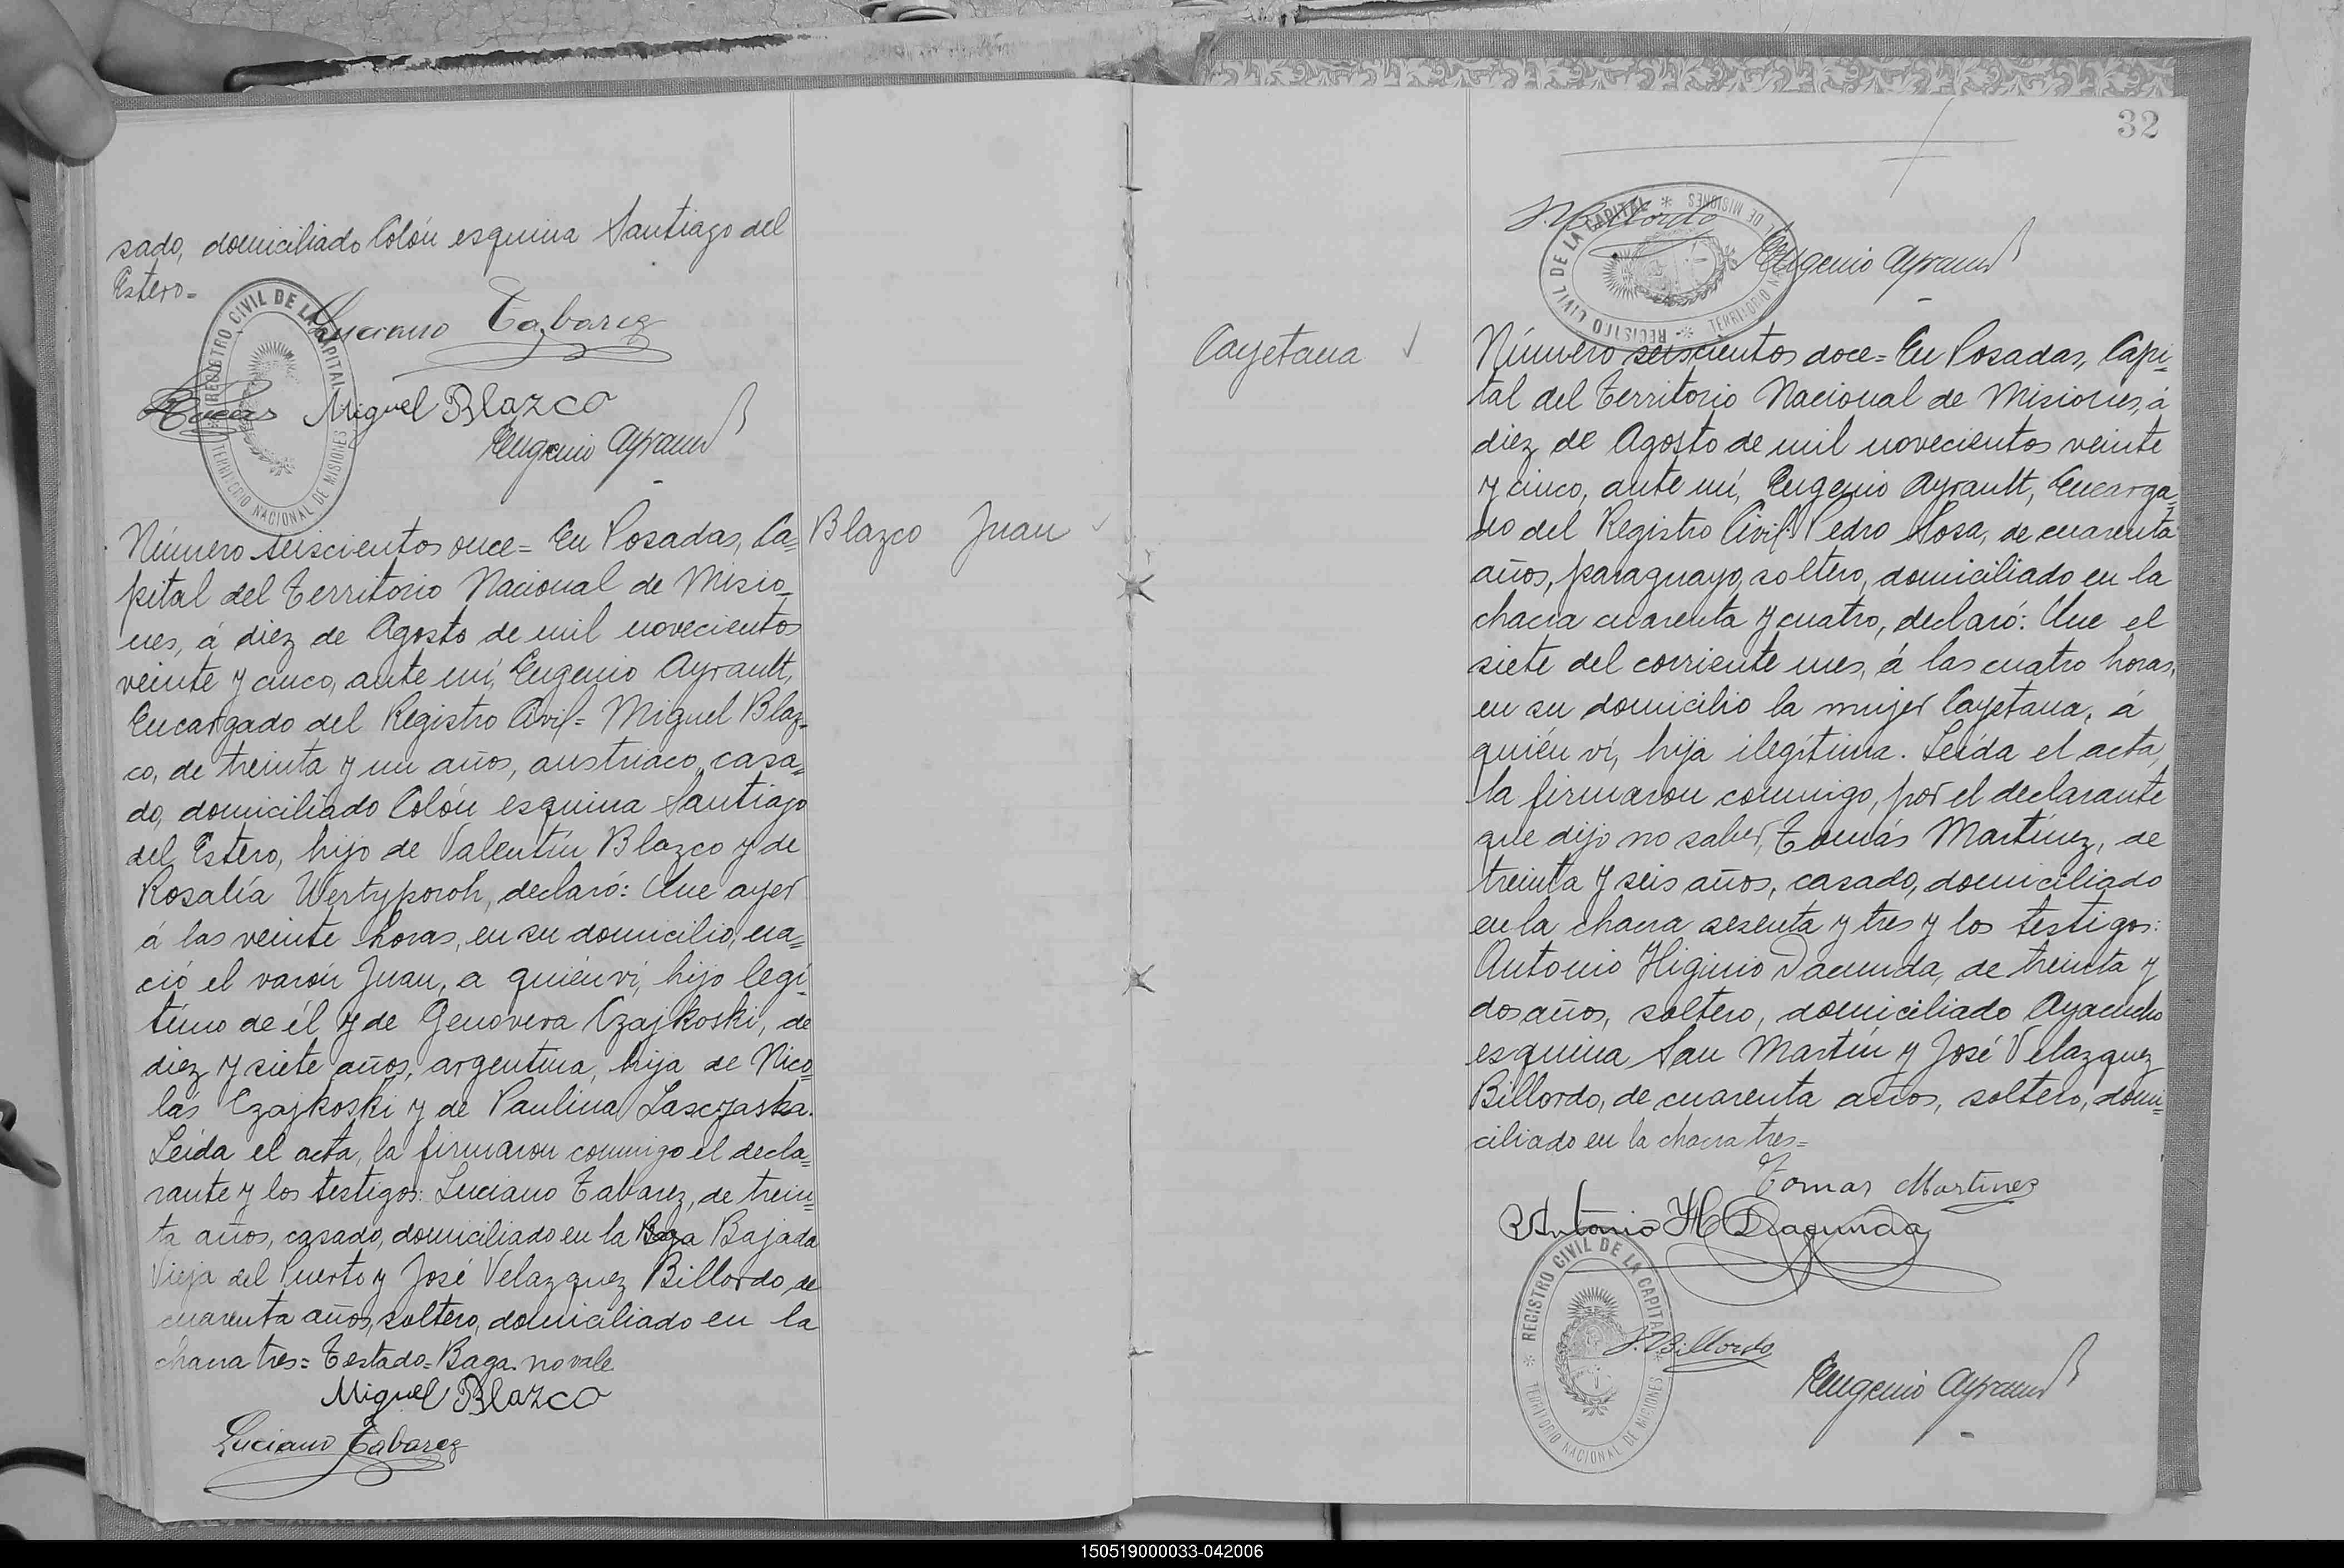 sado, domiciliado Colón esquina Santiago del
Estero=
Luciano Tabarez
Miguel Blazco
Eugenio Ayrault
REGISTRO CIVIL DE LA CAPITAL
TERRITORIO NACIONAL DE MISIONES
Blazco Juan
Número seiscientos once= En Posadas, Ca=
pital del Territorio Nacional de Misio=
nes, á diez de Agosto de mil novecientos
veinte y cinco, ante mí, Eugenio Ayrault,
Encargado del Registro Civil= Miguel Blaz=
co, de treinta y un años, austriaco, casa=
do, domiciliado Colón esquina Santiago
del Estero, hijo de Valentín Blazco y de
Rosalía Wertyporoh, declaró: Que ayer
á las veinte horas, en su domicilio, na=
ció el varón Juan, a quién ví, hijo legí=
timo de él y de Genovera Czajkoski, de
diez y siete años, argentina, hija de Nico=
lás Czajkoski y de Paulina Lasczaska.
Leída el acta, la firmaron conmigo el decla=
rante y los testigos: Luciano Tabarez, de trein=
ta años, casado, domiciliado en la Baga Bajada
Vieja del Puerto y José Velazquez Billordo, de
cuarenta años, soltero, domiciliado en la
chacra tres= Testado=Baga. no vale
Miguel Blazco
Luciano Tabarez
32
J. Billordo
Eugenio Ayrault
REGISTRO CIVIL DE LA CAPITAL
TERRITORIO NACIONAL DE MISIONES
Cayetana
Número seiscientos doce= En Posadas, Capi=
tal del Territorio Nacional de Misiones, á
diez de Agosto de mil novecientos veinte
y cinco, ante mí, Eugenio Ayrault, Encarga=
do del Registro Civil= Pedro Sosa, de cuarenta
años, paraguayo, soltero, domiciliado en la
chacra cuarenta y cuatro, declaró: Que el
siete del corriente mes, á las cuatro horas,
en su domicilio la mujer Cayetana, á
quién ví, hija ilegítima. Leída el acta,
la firmaron conmigo, por el declarante
que dijo no saber, Tomás Martínez, de
treinta y seis años, casado, domiciliado
en la chacra sesenta y tres y los testigos:
Antonio Higinio Dacunda, de treinta y
dos años, soltero, domiciliado Ayacucho
esquina San Martín y José Velazquez
Billordo, de cuarenta años, soltero, domi=
ciliado en la chacra tres=
Tomas Martinez
Antonio H Dacunda
J. Billordo
Eugenio Ayrault
REGISTRO CIVIL DE LA CAPITAL
TERRITORIO NACIONAL DE MISIONES
150519000033-042006